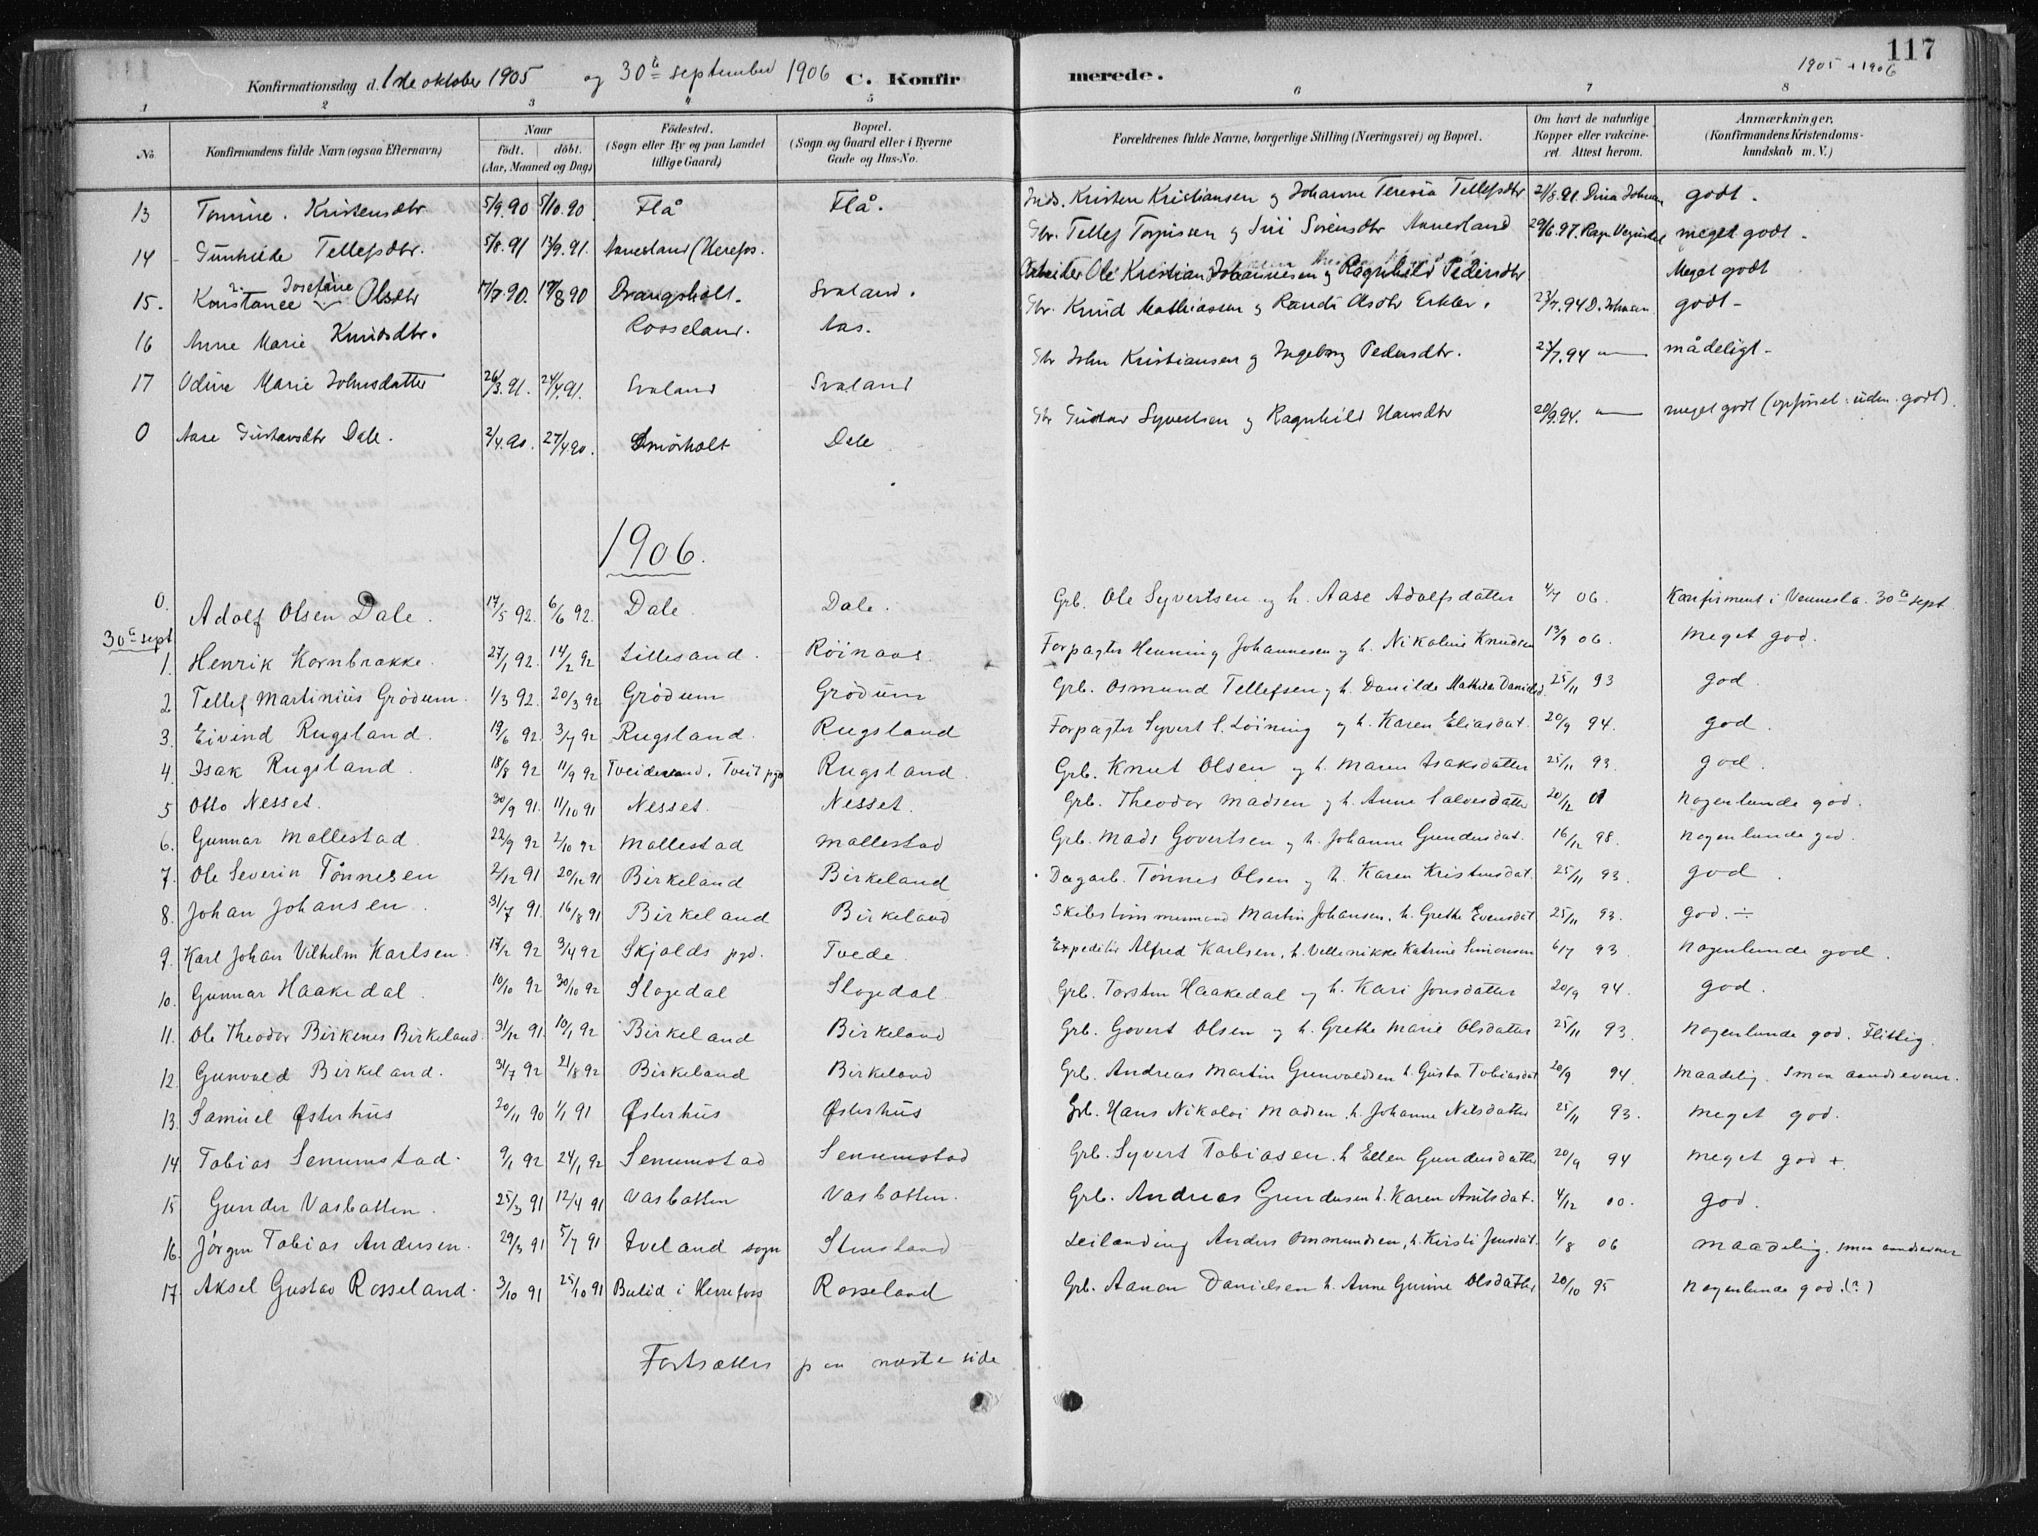 117
1905 + 1906
Konfirmationsdag d. 1ste oktober 1905 og 30te september 1906 C. Konfirmerede.
1 2 3 4 5 6 7 8
No Konfirmandens fulde Navn (ogsaa Efternavn) Naar födt. döbt. (Aar, Maaned og Dag) Födested. (Sogn eller By og paa Landet tillige Gaard) Bopæl. (Sogn og Gaard eller i Byerne Gade og Hus-No. Forældrenes fulde Navne, borgerlige Stilling (Næringsvei) og Bopæl. Om havt de naturlige Kopper eller vakcineret Attest herom. Anmærkninger. (Konfirmandens Kristendomskundskab m. V.)
13 Tomine Kristensdtr 5/9 90 5/10 90 Flå Flå. Inds. Kristen Kristiansen og Johanne Teresia Tellefsdtr 21/8 91 Dina Johnsen godt.
14 Gunhilde Tellefsdtr. 5/8 91 13/9 91. (Herefos. Gbr. Tellef Torjussen og Siri Sörensdtr 29/6 97. meget godt.
Arbeider Ole Kristian Johannesen og Ragnhild Pedersdtr Meget godt
15. Konstance Josefine Olsdtr 17/7 90. 17/8 90 Drangsholt. Svaland. Gbr. Knud Mathiassen og Randi Olsdtr 23/7 94 D. Johnsen godt-
16 Anne Marie Knudsdtr. Rosseland. Aas. Gbr John Kristiansen og Ingeborg Pedersdtr. 23/7 94 — mådeligt-
17 Odine Marie Johnsdatter 26/3 91. 24/4 91. Svaland Svaland
0 Aase Gustavsdtr Dale. 2/4 90. 27/4 90. Smörholt Dale Gbr Gustav Syvertsen og Ragnhild Hansdtr 20/9 94. — meget godt
1906.
0. Adolf Olsen Dale. 17/5 92. 6/6 92. Dale. Dale. Grb. Ole Syvertsen og h. Aase Adolfsdatter 4/7 06. Konfirmert i Vennesla. 30te sept.
30te sept
1. Henrik Kornbrække. 27/1 92. 14/2 92 Lillesand. Röinaas. Forpagter Henning Johannesen og h. Nikoline Knudsen 13/9 06. Meget god.
2 Tellef Martinius Grödum. 1/3 92. 20/3 92 Grödum Grödum Grb. Osmund Tellefsen, h. Danilde Mathilde Danielsd. 25/11 93 god.
3. Eivind Rugsland. 19/6 92. 3/7 92 Rugsland. Rugsland Forpagter Syvert S. Löining og h. Karen Eliasdat. 20/9 94. god.
4. Isak Rugsland. 18/8 92 11/9 92 Tveit pgd Rugsland. Grb. Knut Olsen og h. Maren Isaksdatter 25/11 93. god.
5 Otto Nesset. 30/9 91. 11/10 91 Nesset. Nesset. Grb. Theodor Madsen og h. Anne Salvesdatter 20/12 01 Nogenlunde god.
6. Gunnar Mollestad. 22/9 92 2/10 92 Mollestad Mollestad Grb. Mads Govertsen og h. Johanne Gundersdat. 16/12 98. Nogenlunde god.
7. Ole Severin Tønnesen 2/12 91 20/12 91 Birkeland Birkeland Dagarb. Tønnes Olsen og h. Karen Kristensdat. 25/11 93. god.
8. Johan Johansen. 31/7 91. 16/8 91 Birkeland Birkeland Skibstömmermand Martin Johansen, h. Grethe Evensdat 25/11 93. god. ÷
9. Karl Johan Vilhelm Karlsen. 17/2 92 3/4 92 Skjolds pgd. Tvede. Expeditör Alfred Karlsen, h. Katrine Simonsen 6/7 93. Nogenlunde god.
10. Gunnar Haakedal. 10/10 92 30/10 92 Slogedal Slogedal. Grb. Torsten Haakedal og h. Kari Jonsdatter 20/9 94. god.
11. Ole Theodor Birkenes Birkeland. 31/12 91 10/1 92 Birkeland Birkeland Grb. Govert Olsen og h. Grethe Marie Olsdatter 25/11 93. Nogenlunde god. Flittig.
12. Gunvald Birkeland. 31/7 92 21/8 92 Birkeland Birkeland Grb. Andreas Martin Gunvaldsen h. Gusta Tobiasdat. 20/9 94. Maadelig. Smaa aandsevner.
13. Samuel Østerhus 20/11 90 1/1 91 Østerhus Østerhus Grb. Hans Nikolai Madsen, h. Johanne Nilsdatter 25/11 93. Meget god.
14 Tobias Senumstad. 9/1 92 24/1 92 Senumstad Senumstad Grb. Syvert Tobiasen. h Ellen Gundersdatter 20/9 94 Meget god +.
15 Gunder Vasbotten. 25/3 91 12/4 91 Vasbotten Vasbotten. Grb. Andreas Gundersen h. Karen Asulsdat. 4/12 00. god.
16. Jörgen Tobias Andersen. 29/3 91 5/7 91 Iveland sogn Stensland Leilænding Anders Ommundsen, h. Kirsti Jensdat. 1/8 06 Maadelig. Smaa aandsevner
17 Aksel Gustav Rosseland. 3/10 91 25/10 91 i Herrefoss Rosseland Grb. Aanon Danielsen h. Anne Gurine Olsdatter 20/10 95 Nogenlunde god. (?)
Fortsættes paa næste side